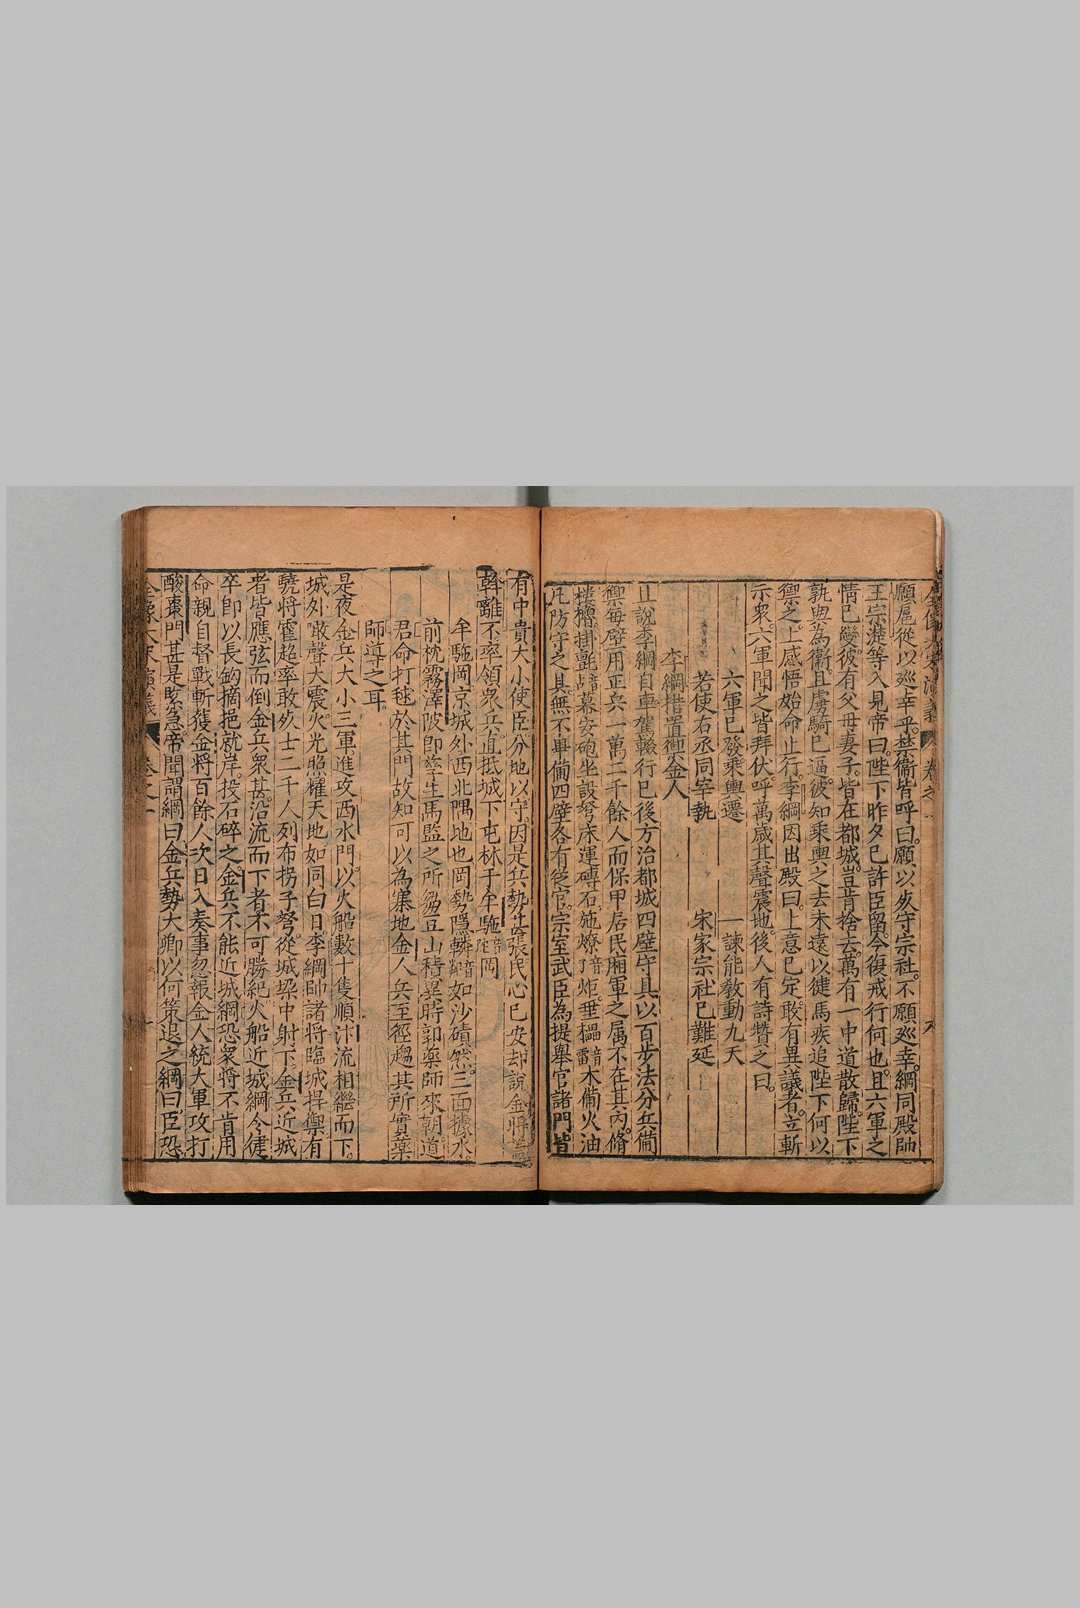 願扈從以巡幸乎。禁衛皆呼曰。願以死守宗社。不願巡幸。綱同殿帥
王宗濋等入見帝曰。陛下昨夕已許臣留。今復戒行何也。且六軍之
情已變。彼有父母妻子。皆在都城。豈肯捨去。萬有一中道散歸。陛下
孰與為衛。且虜騎已逼。彼知乘輿之去未遠。以健馬疾追。陛下何以
禦之。上感悟。始命止行。李綱因出殿曰。上意已定。敢有異議者。立斬
示眾。六軍聞之皆拜伏。呼萬歲。其聲震地。後人有詩贊之曰。
六軍已發乘輿遷 一諫能教動九天
若使右丞同宰執 宋家宗社已難延
李綱措置禦金人
且說李綱自車駕輟行已後。方治都城四壁守具。以百步法分兵備
禦。每壁用正兵一萬二千餘人。而保甲居民廂軍之屬不在其內。脩
樓櫓掛氈幕安砲坐設弩床運磚石施燎炬垂櫑木備火油
凡防守之具無不畢備。四壁各有從官。宗室武臣為提舉官。諸門皆
有中貴大小使臣分地以守。因是兵勢益張民心已安。却說金將
斡離不率領眾兵。直抵城下。屯林于牟駞岡
牟駞岡京城外西北隅地也。岡勢隱轔如沙磧然。三面據水
前枕霧澤陂。即孳生馬監之所。芻豆山積。異時郭藥師來朝。道
君命打毬於其門。故知可以為寨地。金人兵至徑趨其所。實藥
師導之耳
是夜金兵大小三軍進攻西水門。以火船數十隻順汴流相繼而下。
城外喊聲大震。火光照耀天地如同白日。李綱帥諸將臨城捍禦。有
驍將霍超率敢死士二千人。列布拐子弩。從城垜中射下。金兵近城
者。皆應弦而倒。金兵眾甚。沿流而下者不可勝紀。火船近城。綱令健
卒即以長鈎摘挹就岸。投石碎之。金兵不能近城。綱恐眾將不肯用
命。親自督戰。斬獲金將百餘人。次日入奏事。忽報金人統大軍攻打
酸棗門甚是緊急。帝聞謂綱曰。金兵勢大。卿以何策退之。綱曰。臣恐